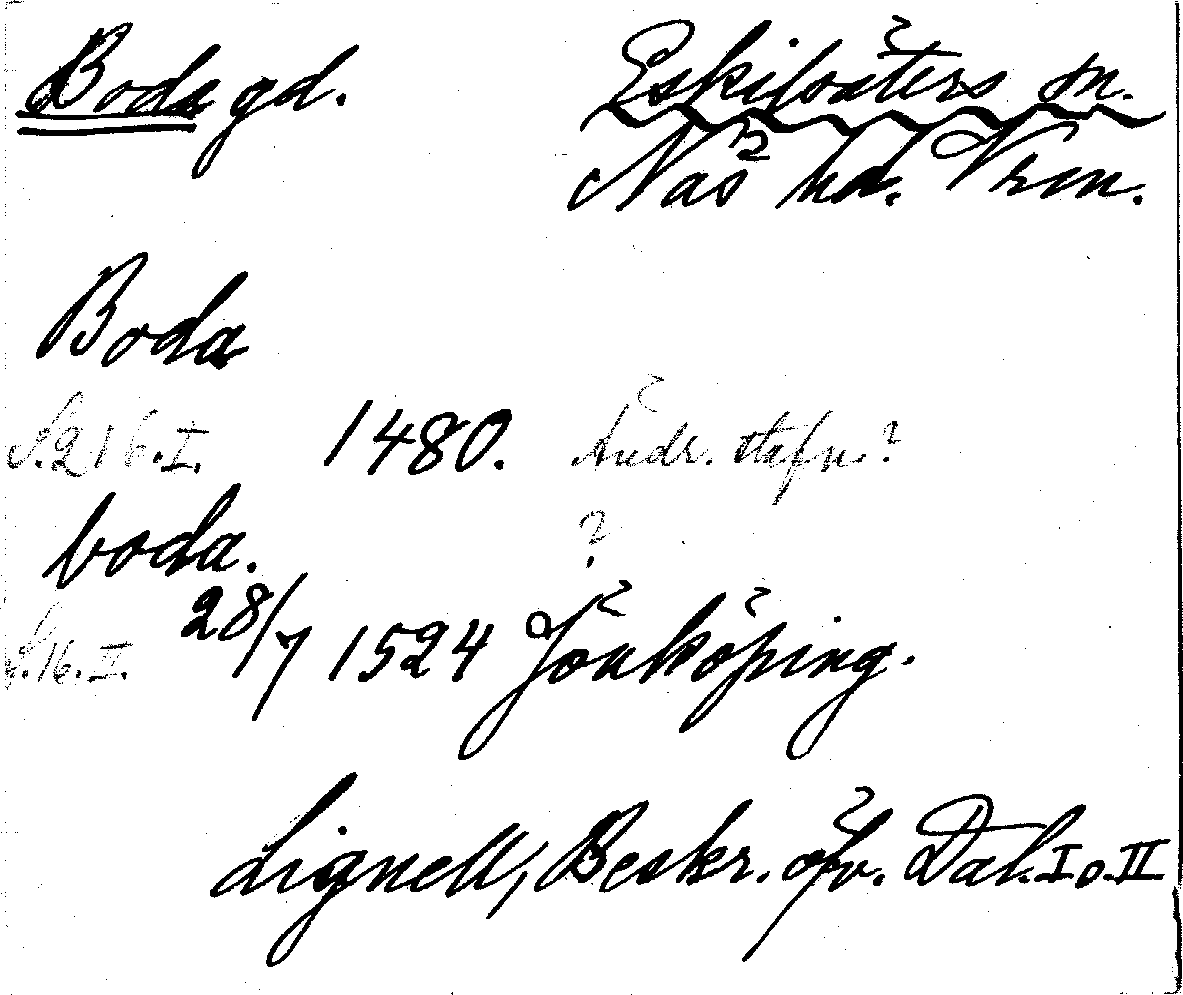 Boda gd. Eskilsäters sn.
Näs hd. Vrm.
Boda
S. 216. I. 1480. Ändr. stafn.?
boda. ?
S. 16. II. 28/7 1524 Jönköping.
Lignell, Beskr. öfv. Dal. I o. II